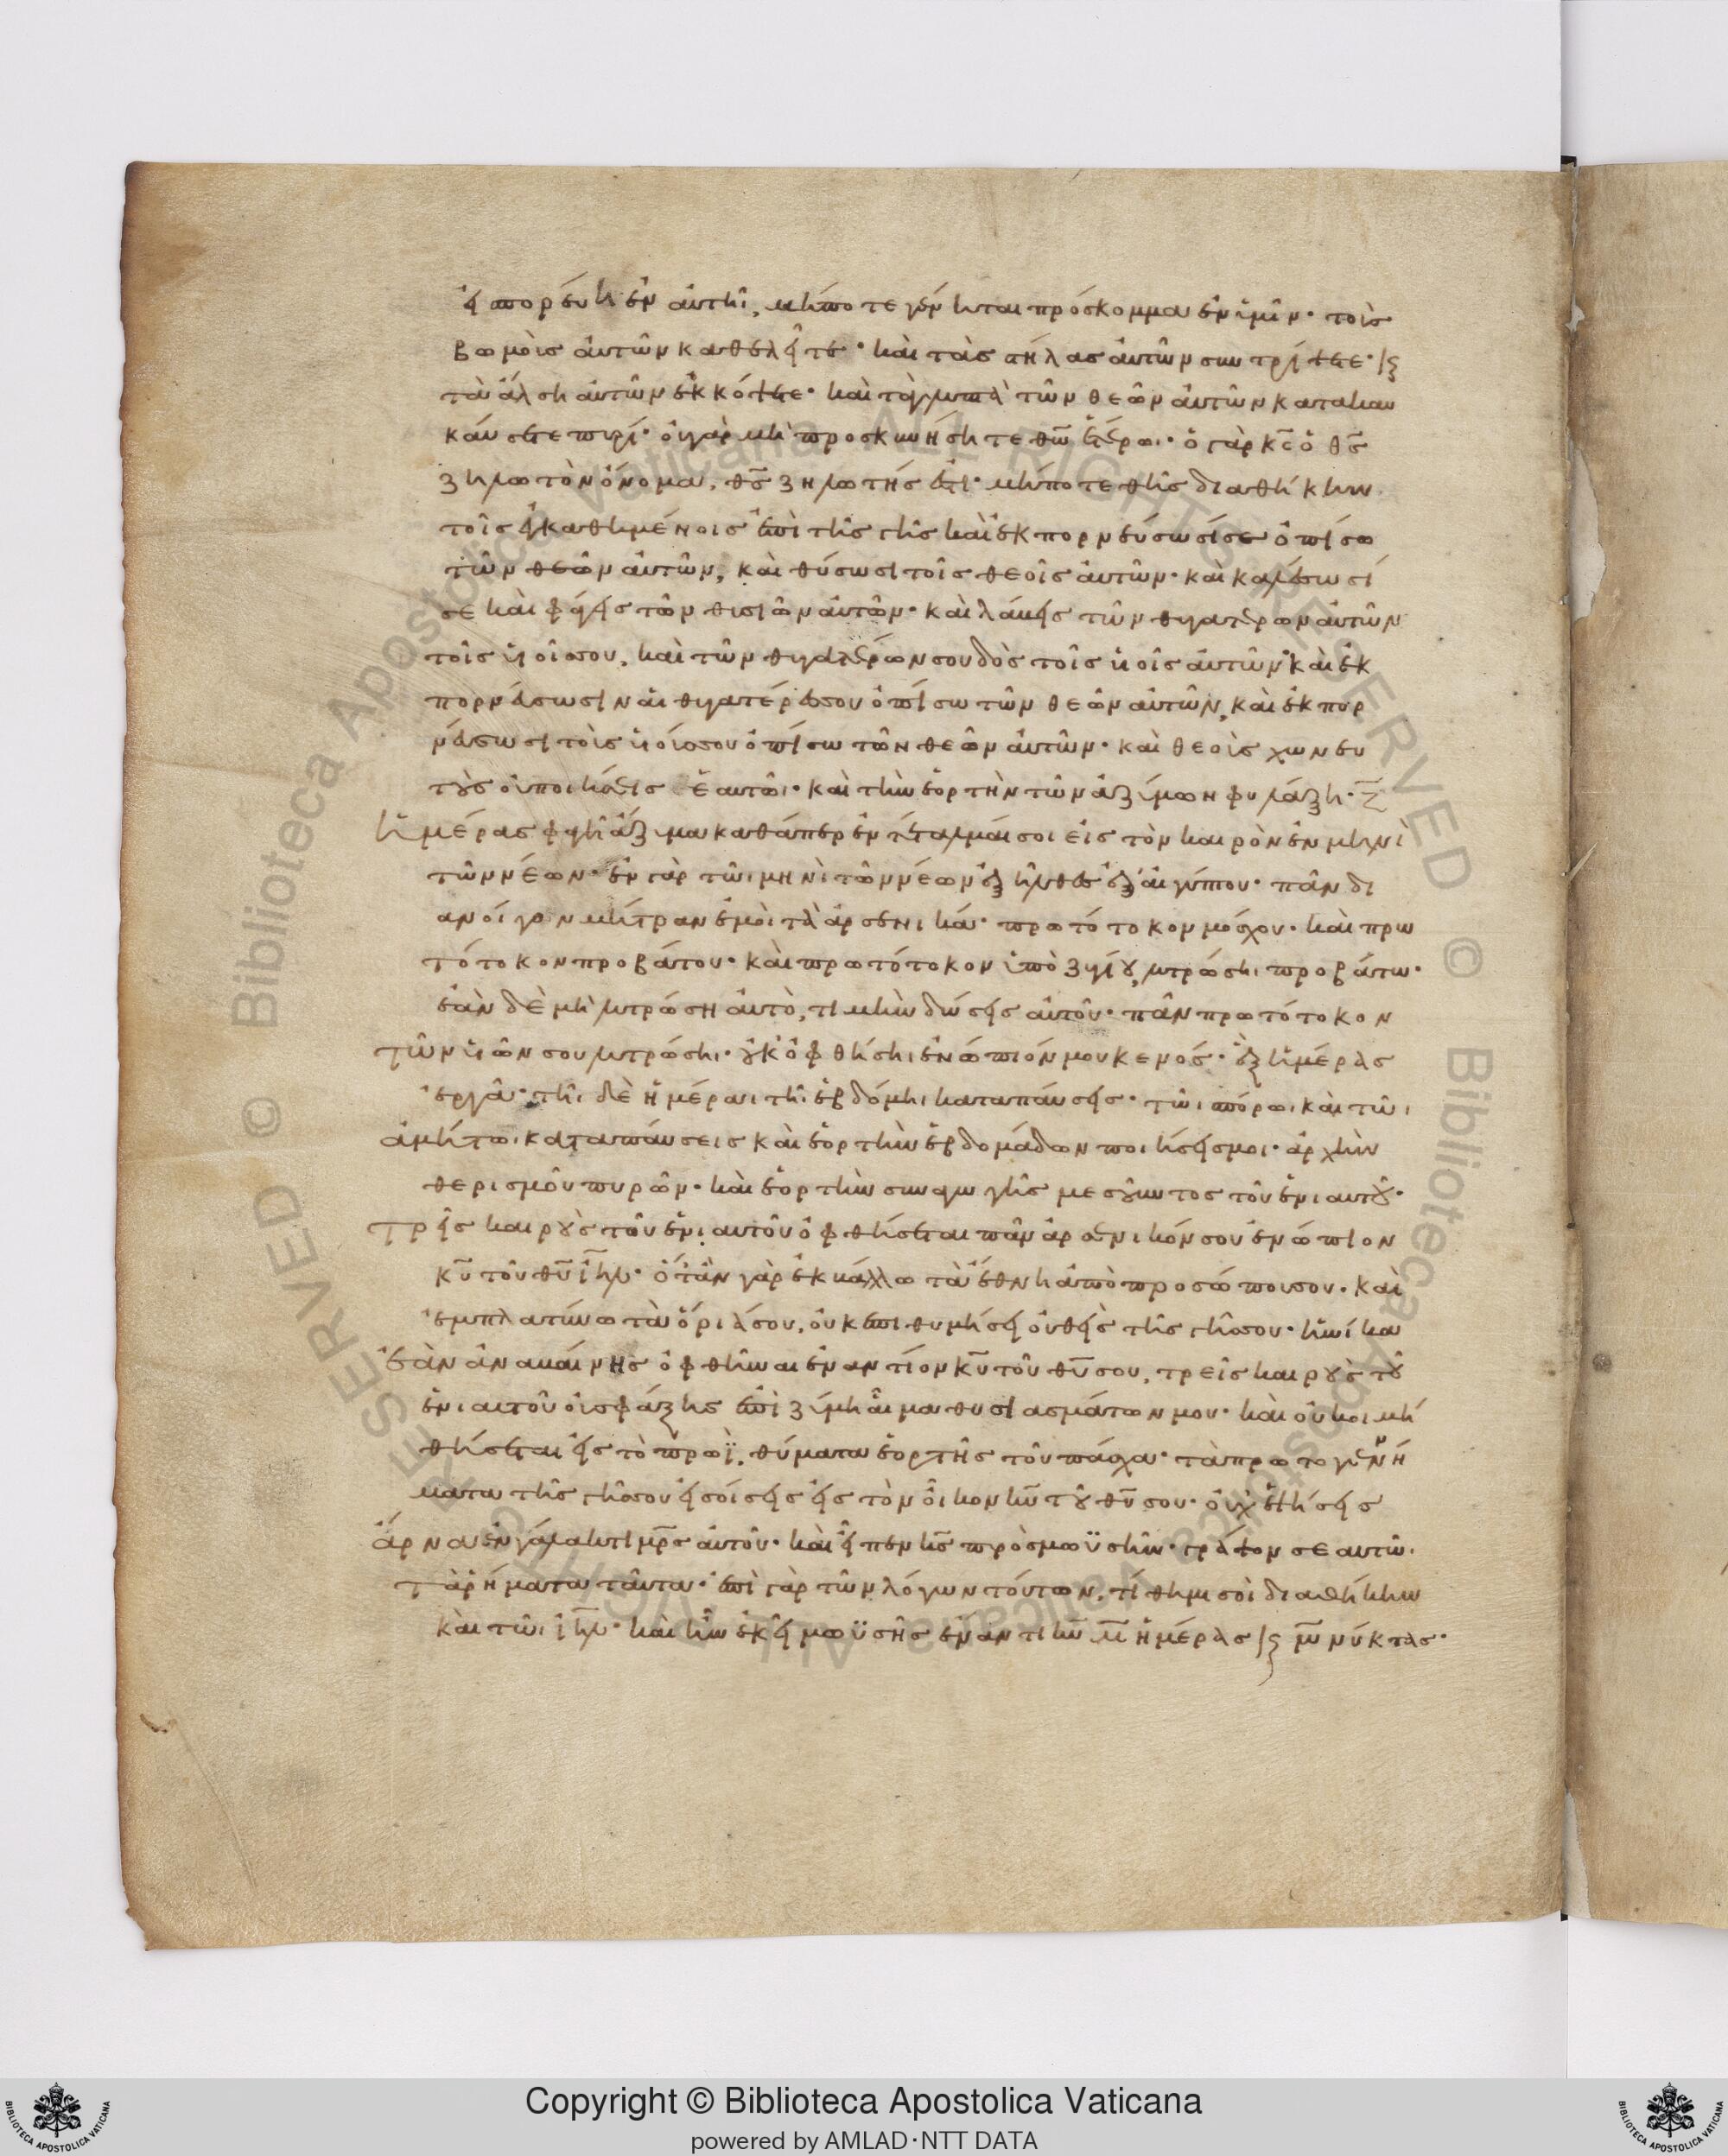 εἰ πορεύη ἐν αὐτῆι, μήποτε γένηται πρόσκομμα ἐν ἱμῖν· τοὶς
βωμοὶς αὐτῶν καθελεῖτε· καὶ τὰς στήλας αὐτῶν συντρίψετε· κ(αὶ)
τὰ ἄλση αὐτῶν ἐκκόψετε· καὶ τὰ γλυπτὰ τῶν θεῶν αὐτῶν κατακαυ
καύσετε πυρί· οὐ γὰρ μὴ προσκυνήσητε θω̄ ἑτέρωι· ὁ γὰρ κ̄ς̄ ὁ θ̄ς̄
ζηλωτὸν ὄνομα, θ̄ς̄ ζηλωτής ἐστι· μήποτε θῆς διαθήκην
τοῖς ἐγκαθημένοις ἐπὶ τῆς γῆς καὶ ἐκπορνεύσωσίσε ὀπίσω
τῶν θεῶν αὐτῶν, καὶ θύσωσι τοῖς θεοῖς αὐτῶν· καὶ καλέσωσί
σε καὶ φάγεις τῶν θισιῶν αὐτῶν· καὶ λάβεις τῶν θυγατέρων αὐτῶν
τοῖς υἱοῖσου, καὶ τῶν θυγατέρων σου δὸς τοῖς υἱοῖς αὐτῶν· καὶ ἐκ
πορνεύσωσιν αἱ θυγατέρεσσου ὀπίσω τῶν θεῶν αὐτῶν, καὶ ἐκπορ
νεύσωσι τοὶς υἱοίσσου ὀπίσω τῶν θεῶν αὐτῶν· καὶ θεοὶς χωνευ
τοὺς οὐ ποιήσεις σεαυτῶι· καὶ τὴν ἑορτὴν τῶν ἀζίμων φυλάξη· ζ̄
ἡμέρας φαγῆ ἄζιμα καθάπερ ἐντέταλμαί σοι εἰς τὸν καιρὸν ἐν μηνὶ
τῶν νέων· ἐν γὰρ τῶι μηνὶ τῶν νέων ἐξῆλθες ἐξ αἰγύπτου· πᾶν δι
ανοίγον μήτραν ἐμοὶ τὰ ἀρσενικά· πρωτότοκον μόσχου· καὶ πρω
τότοκον προβάτου· καὶ πρωτότοκον ὑποζυγίου, λυτρώσηι προβάτω·
ἐὰν δὲ μὴ λυτρώση αὐτὸ, τιμὴν δώσεις αὐτοῦ· πᾶν πρωτότοκον
τῶν υἱῶν σου λυτρώσηι· οὐκ ὀφθήσηι ἐνώπιόν μου κενός· ἓξ ἡμέρας
ἐργᾶ· τῆι δὲ ἡμέραι τῆι ἑβδόμηι καταπαύσεις· τῶι σπόρωι καὶ τῶι
ἀμήτωι καταπαύσεις καὶ ἑορτὴν ἑβδομάδων ποιήσεισμοι· ἀρχὴν
θερισμοῦ πυρῶν· καὶ ἑορτὴν συναγωγῆς μεσοῦντος τοῦ ἐνιαυτοῦ·
τρεῖς καιροὺς τοῦ ἐνιαυτοῦ ὀφθήσεται πᾶν ἀρσενικόν σου ἐνώπιον
κ̄ῡ τοῦ θ̄ῡ ῑη̄λ̄· ὅταν γὰρ ἐκβάλλω τὰ ἔθνη ἀπὸ προσώπου σου· καὶ
ἐμπλατύνω τὰ ὅριάσου, οὐκ ἐπιθυμήσει οὐθεὶς τῆς γῆσσου· ἡνίκα
ἐὰν ἀναβαίνης ὀφθῆναι ἐναντίον κ̄ῡ τοῦ θ̄ῡ σου, τρεῖς καιροὺς τοῦ
ἐνιαυτοῦ οὐ σφάξης ἐπὶ ζύμη αἷμα θυσιασμάτων μου· καὶ οὐ κοιμη
θήσεται εἰς τὸ πρωῒ, θύματα ἑορτῆς τοῦ πάσχα· τὰ πρωτογεννή
ματα τῆς γῆσσου εἰσοίσεις εἰς τὸν οἶκον κ̄ῡ τοῦ θ̄ῡ σου· οὐχ ἑψήσεις
ἄρνα ἐν γάλακτι μρ̄ς αὐτοῦ· καὶ εἶπεν κ̄ς̄ πρὸς μωϋσῆν· γράψον σεαυτῶ·
τὰ ρήματα ταῦτα· ἐπὶ γὰρ τῶν λόγων τούτων, τίθημι σοὶ διαθήκην
καὶ τῶι ῑη̄λ̄· καὶ ἦν ἐκεῖ μωϋσῆς ἐναντι κ̄ῡ μ̄ ἡμέρας κ(αὶ) μ̄ νύκτας·
Copyright © Biblioteca Apostolica Vaticana
powered by AMLAD·NTT DATA